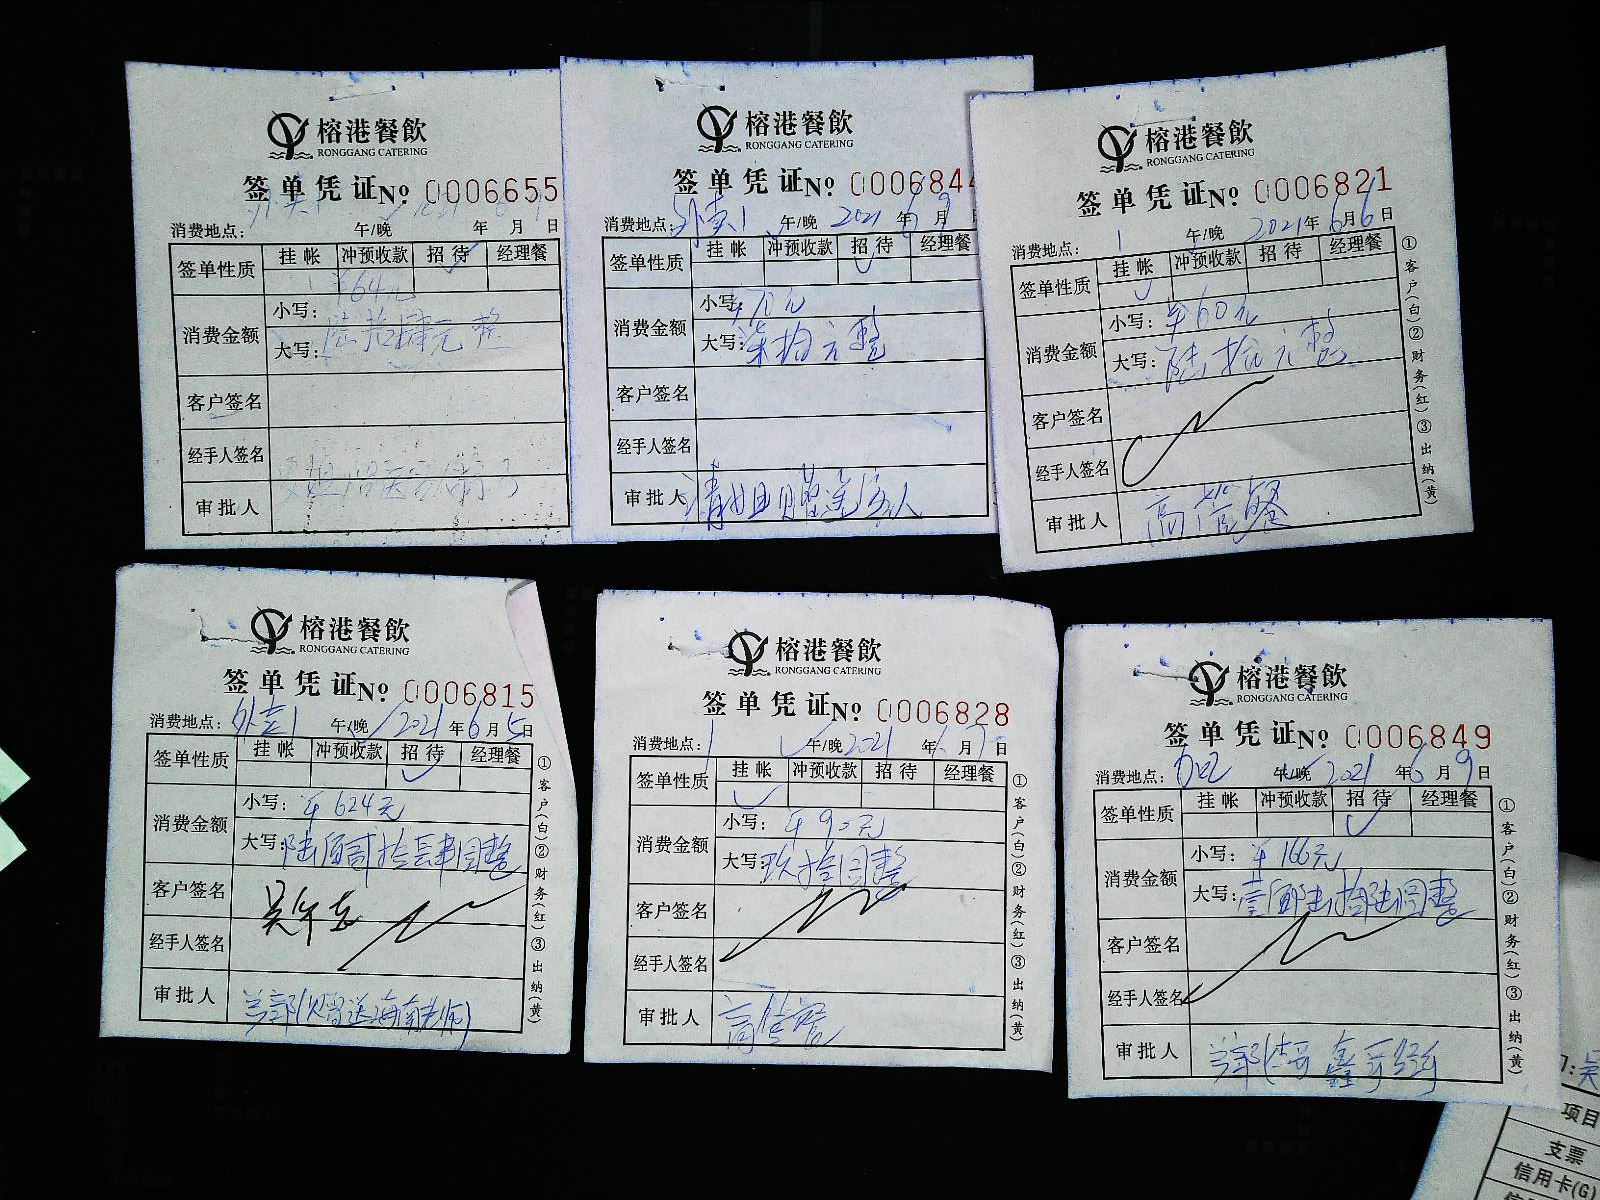 榕港餐飲
RONGGANG CATERING
签单凭证№ 0006655
消费地点: 外卖1 午/晚 年 月 日
签单性质 挂帐 冲预收款 招待 经理餐
消费金额
小写: ¥64元
大写: 陆拾肆元整
客户签名
经手人签名
审批人
榕港餐飲
RONGGANG CATERING
签单凭证№ 000684
消费地点: 外卖1 午/晚 2021 6月9
签单性质 挂帐 冲预收款 招待 经理餐
消费金额
小写: ¥70元
大写: 柒拾元整
客户签名
经手人签名
审批人 清姐赠送客人
榕港餐飲
RONGGANG CATERING
签单凭证№ 0006821
消费地点: 1 午/晚 2021年6月6日
签单性质 挂帐 冲预收款 招待 经理餐
消费金额
小写: ¥60元
大写: 陆拾元整
客户签名
经手人签名
审批人 高管餐
①客户(白)②财务(红)③出纳(黄)
榕港餐飲
RONGGANG CATERING
签单凭证№ 0006815
消费地点: 外卖1 午/晚 2021年6月5日
签单性质 挂帐 冲预收款 招待 经理餐
消费金额
小写: ¥624元
大写: 陆佰贰拾肆圆整
客户签名
经手人签名
审批人 兰郭(赠送海南老师)
①客户(白)②财务(红)③出纳(黄)
榕港餐飲
RONGGANG CATERING
签单凭证№ 0006828
消费地点: 1 午/晚 2021年6月7日
签单性质 挂帐 冲预收款 招待 经理餐
消费金额
小写: ¥90元
大写: 玖拾圆整
客户签名
经手人签名
审批人 高管餐
①客户(白)②财务(红)③出纳(黄)
榕港餐飲
RONGGANG CATERING
签单凭证№ 0006849
消费地点: 午/晚 2021年6月9日
签单性质 挂帐 冲预收款 招待 经理餐
消费金额
小写: ¥166元
大写: 壹佰陆拾陆圆整
客户签名
经手人签名
审批人
①客户(白)②财务(红)③出纳(黄)
项目
支票
信用卡(G)